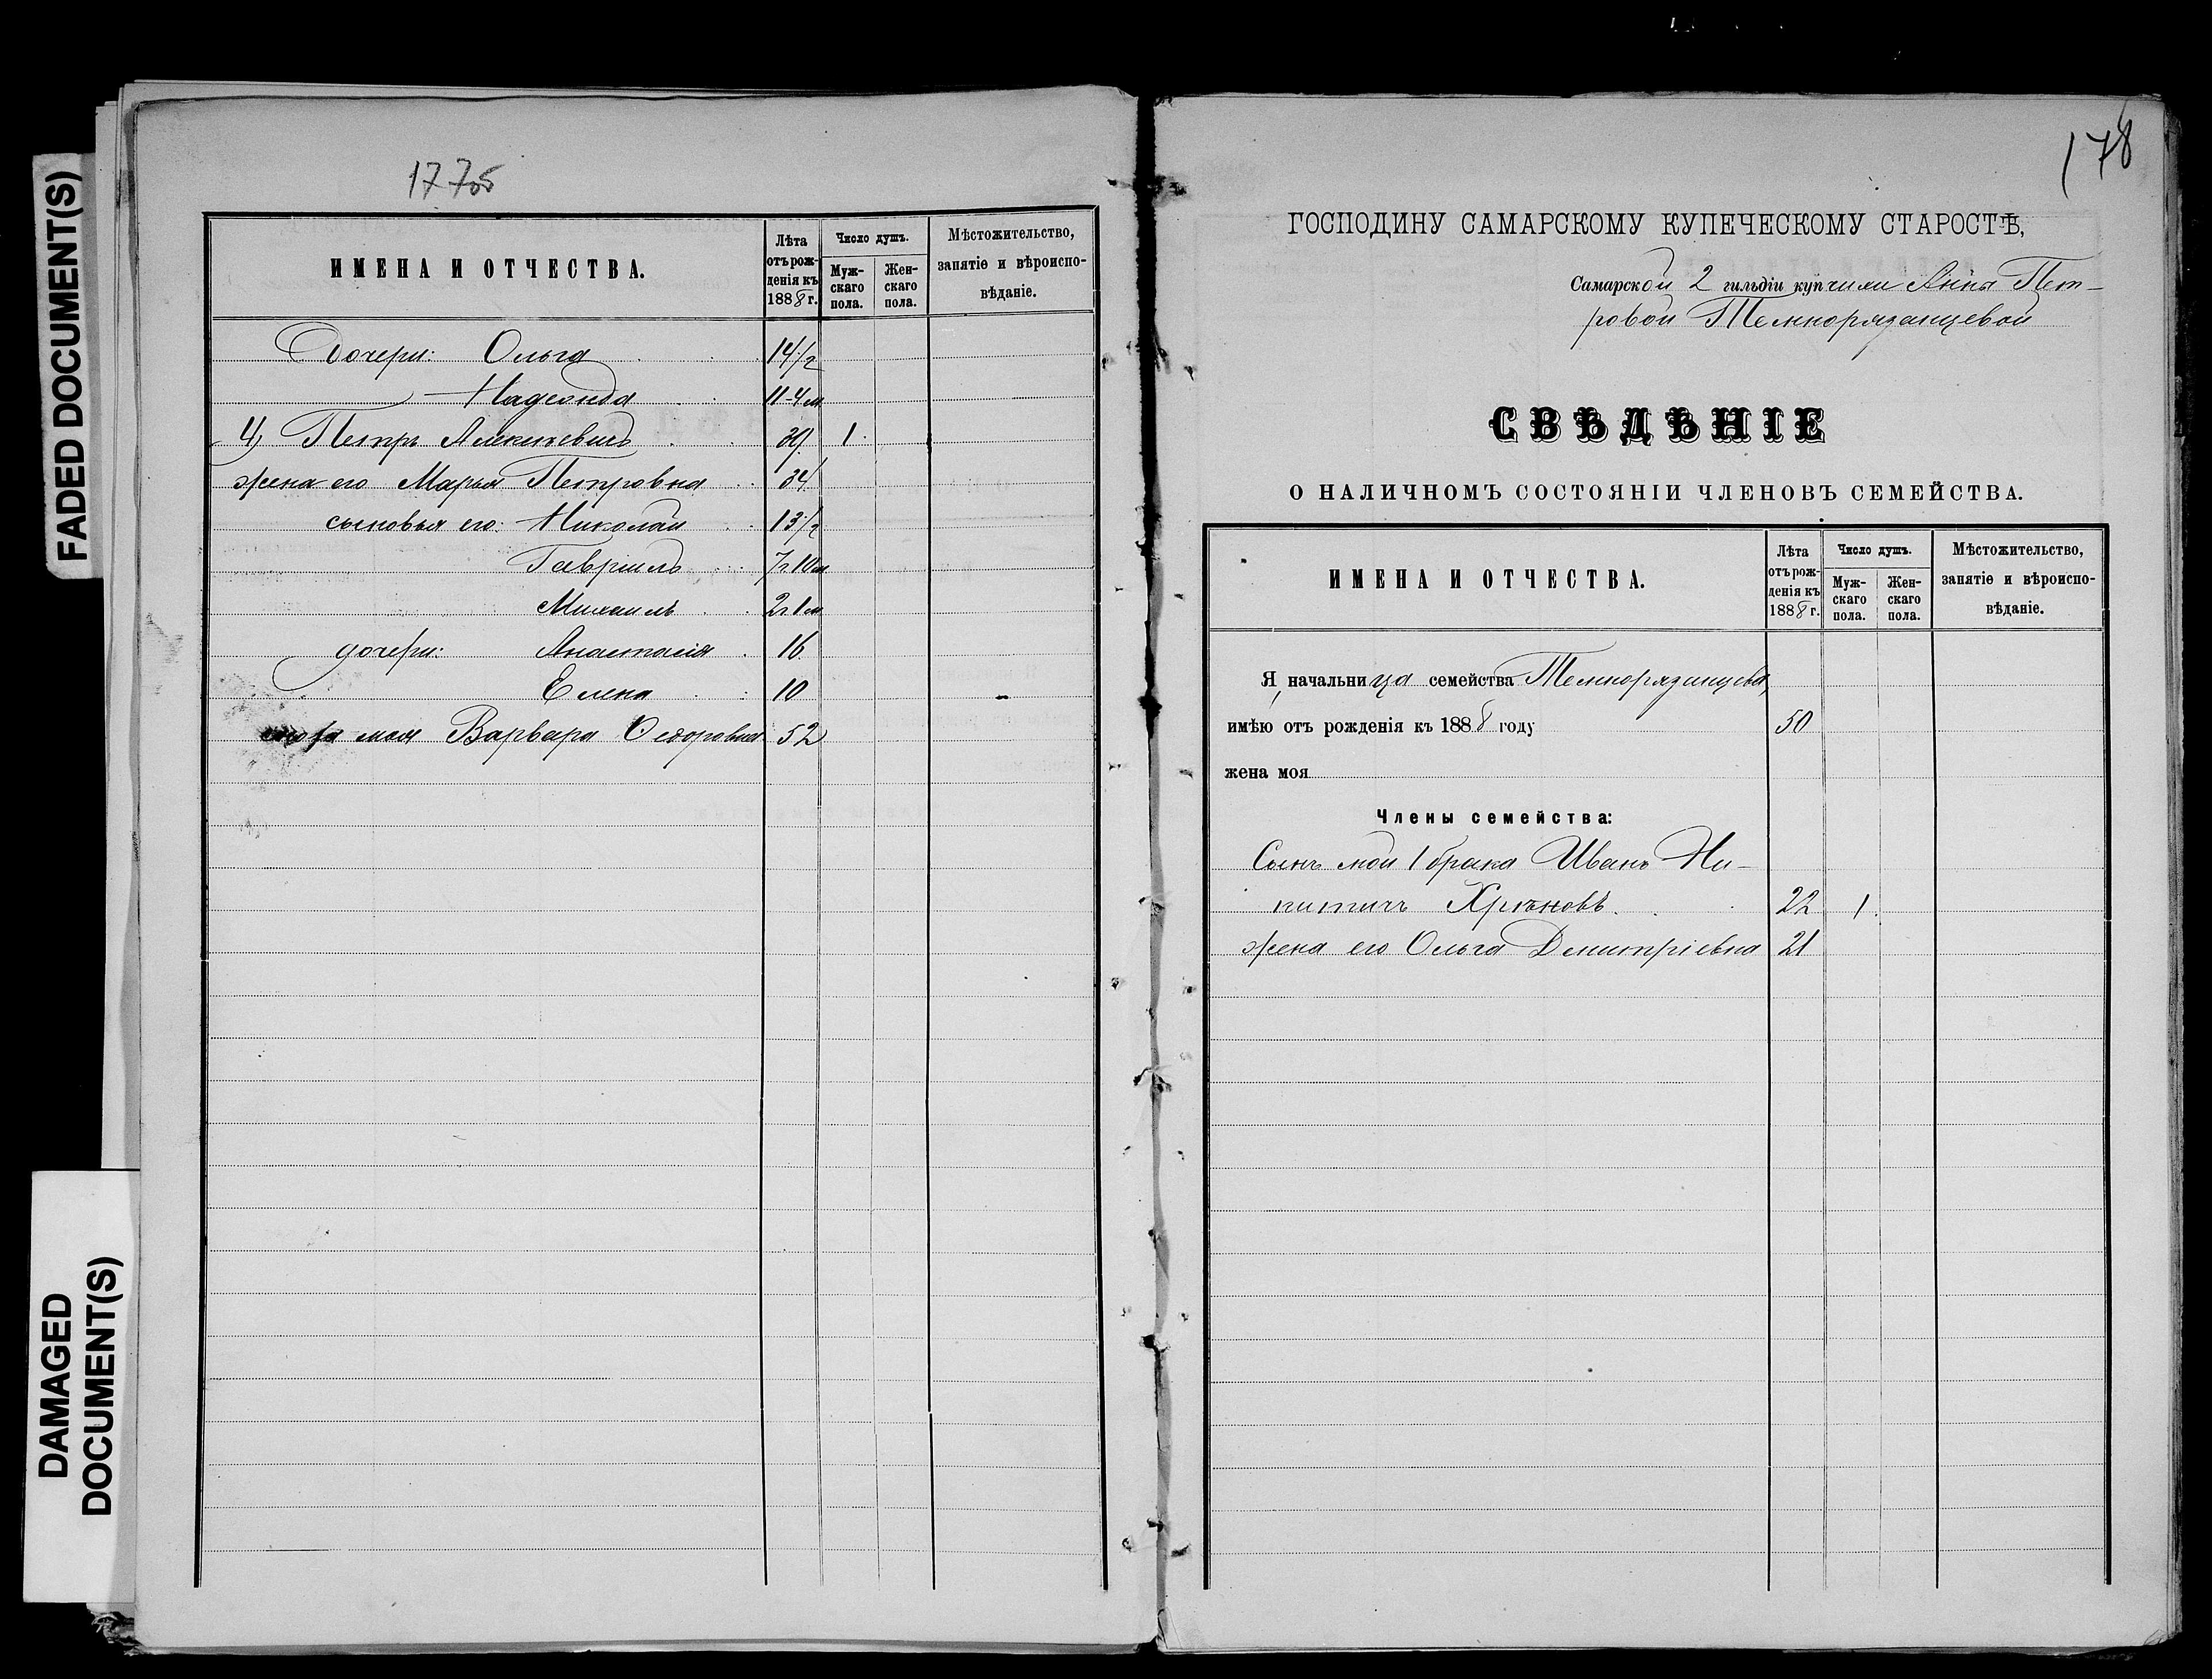 FADED DOCUMENT(S)
DAMAGED
DOCUMENT(S)
ИМЕНА И ОТЧЕСТВА.
Лѣта
отъ рож-
денія къ
1888 г.
Число душъ.
Муж-
скаго
пола.
Жен-
скаго
пола.
Мѣстожительство,
занятіе и вѣроиспо-
вѣданіе.
Дочери: Ольга 14 1/2
Надежда 11-4 м
4) Петръ Алексѣевичъ 39 1
жена его Марья Петровна 34
сыновья его: Николай 13 1/2
Гавріилъ 7 г 10 м
Михаилъ 2 г 1 м
дочери: Анастасія 16
Елена 10
моя Варвара Ѳедоровна 52
178
ГОСПОДИНУ САМАРСКОМУ КУПЕЧЕСКОМУ СТАРОСТѢ,
Самарской 2 гильдіи купчихи Анны Пет-
ровой Темнорязанцевой
СВѢДѢНІЕ
О НАЛИЧНОМЪ СОСТОЯНІИ ЧЛЕНОВЪ СЕМЕЙСТВА.
ИМЕНА И ОТЧЕСТВА.
Лѣта
отъ рож-
денія къ
1888 г.
Число душъ.
Муж-
скаго
пола.
Жен-
скаго
пола.
Мѣстожительство,
занятіе и вѣроиспо-
вѣданіе.
Я начальница семейства Темнорязанцева,
имѣю отъ рожденія къ 1888 году 50
жена моя
Члены семейства:
Сынъ мой 1 брака Иванъ Ни-
китичъ Хрѣновъ 22 1
жена его Ольга Дмитріевна 21